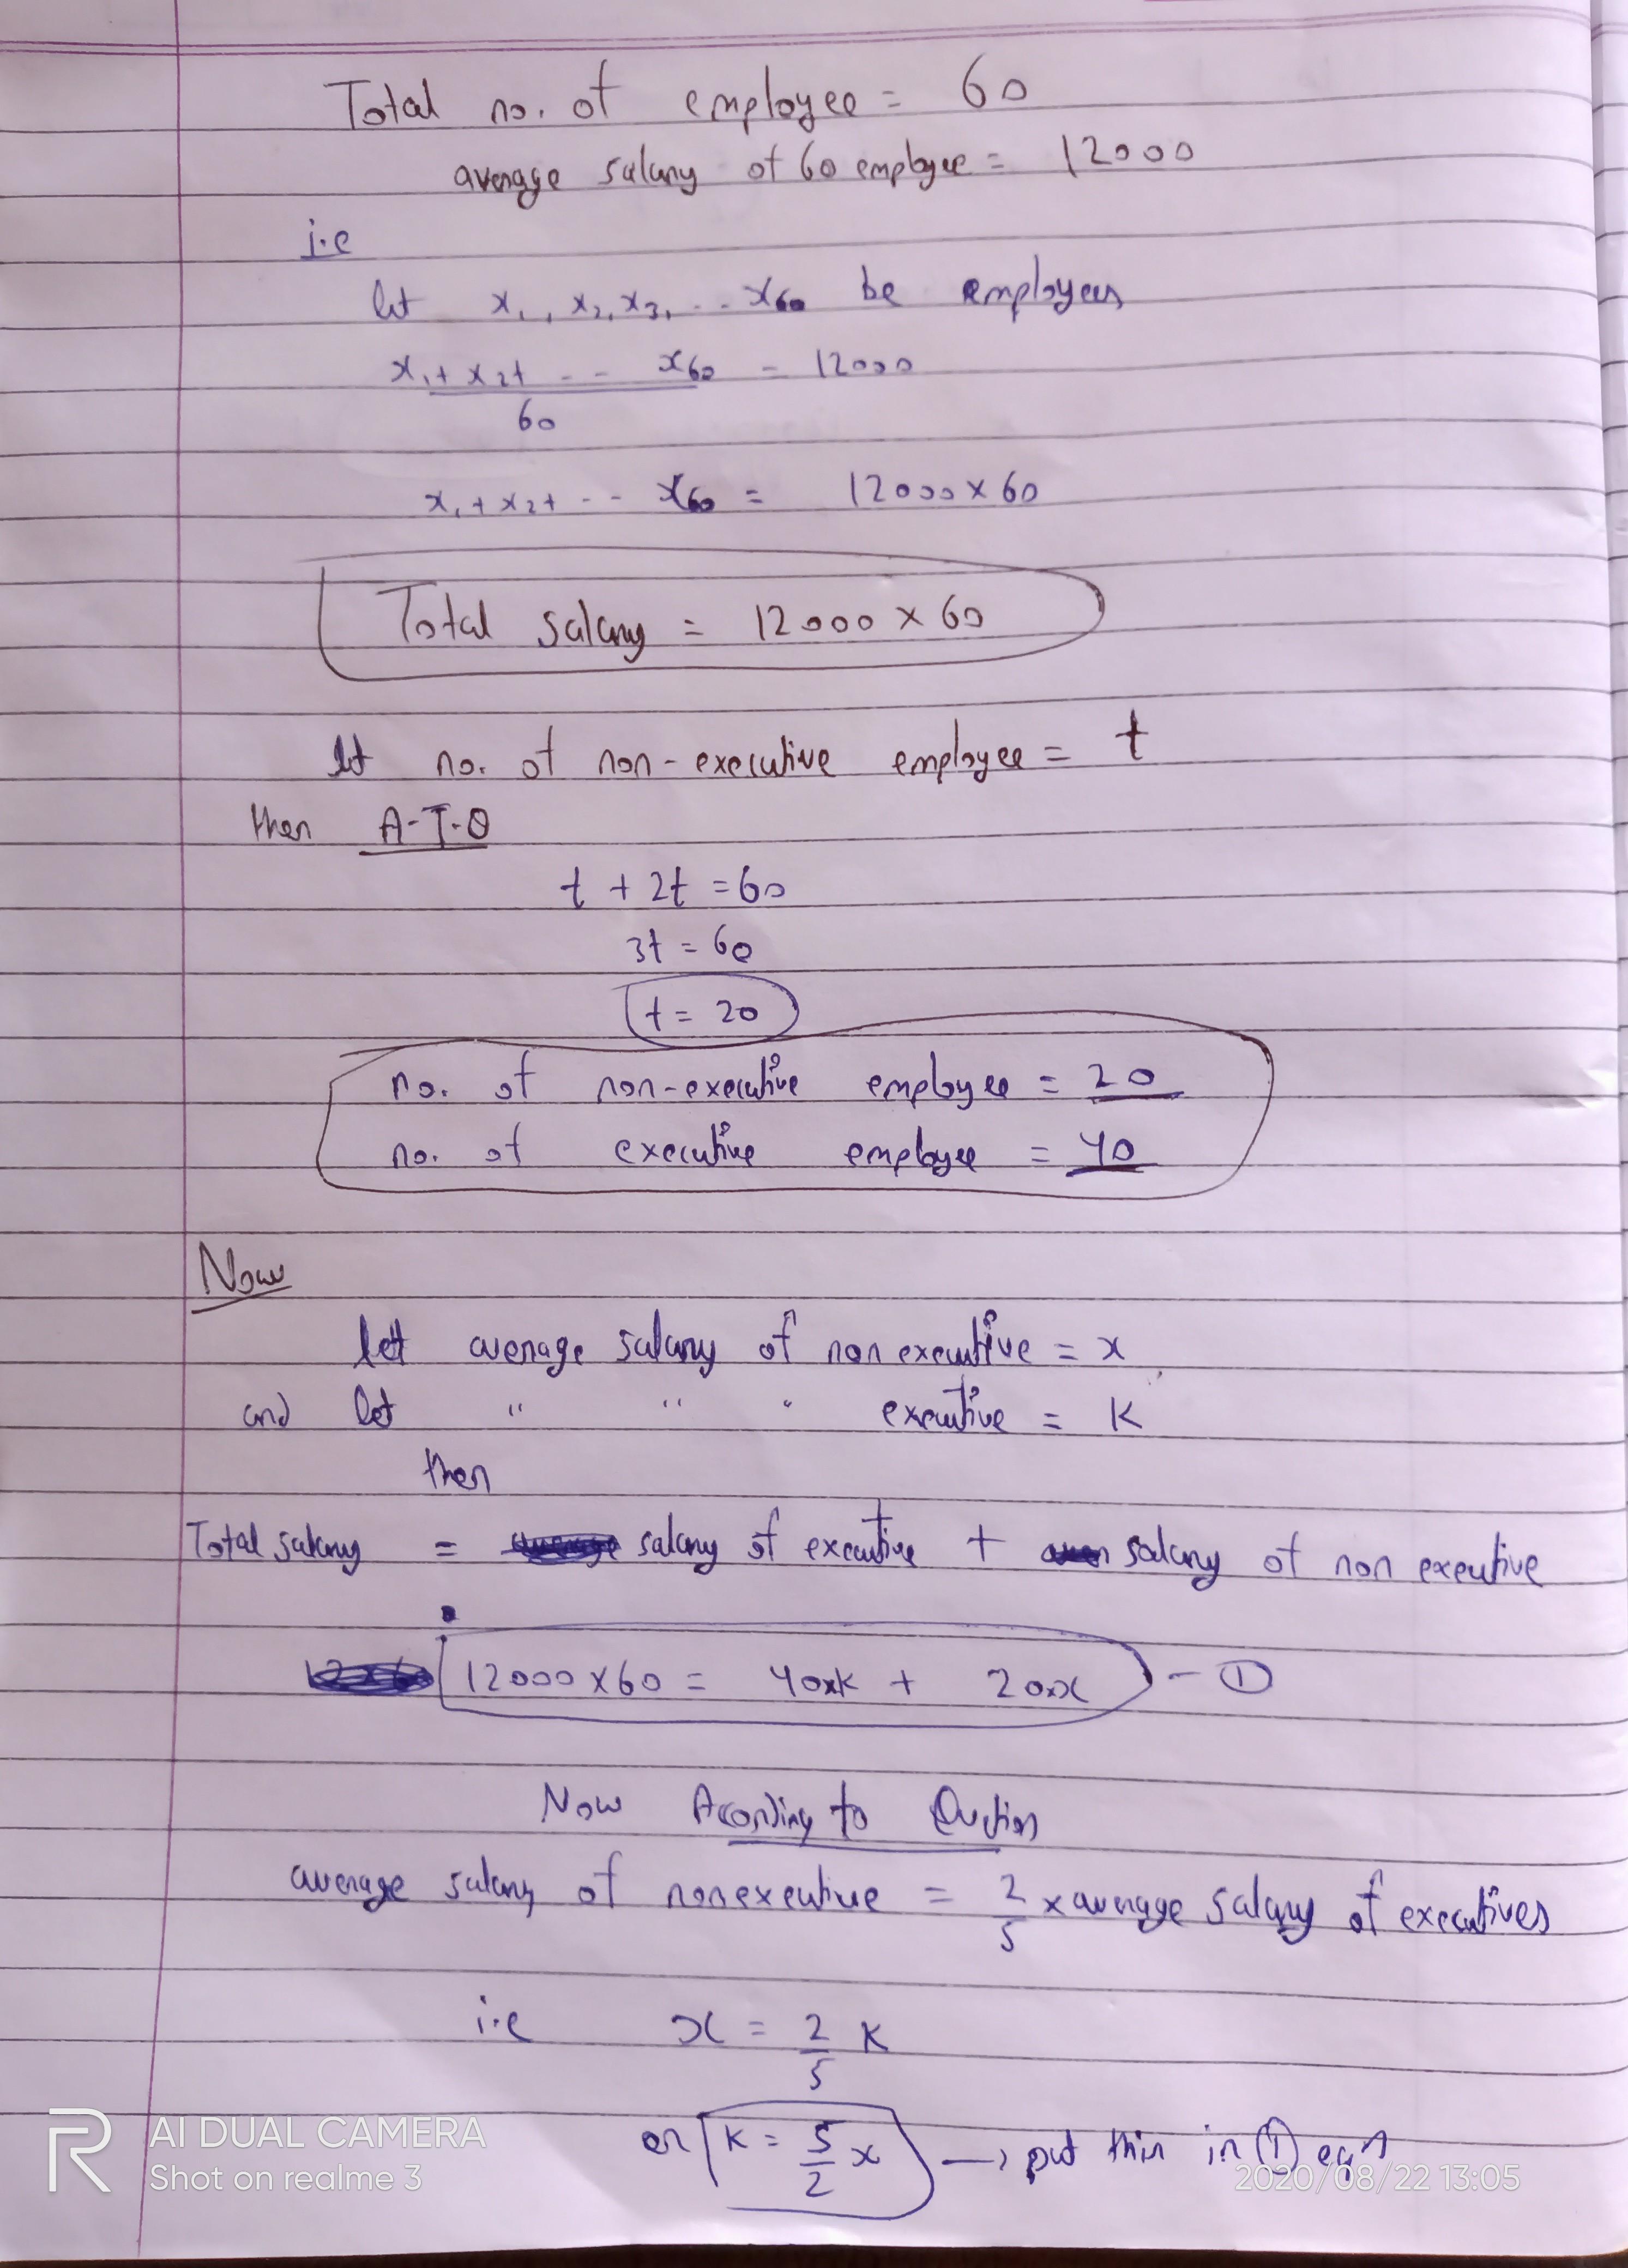 Total no. of employee = 60
average salary of 60 employee = 12000
i.e
let x₁, x₂, x₃, .. x₆₀ be employees
x₁ + x₂ + - - x₆₀ = 12000
60
x₁ + x₂ + - - x₆₀ = 12000 x 60
Total salary = 12000 x 60
let no. of non-executive employee = t
then A-T-Q
t + 2t = 60
3t = 60
t = 20
no. of non-executive employee = 20
no. of executive employee = 40
Now
let average salary of non executive = x
and let " " " executive = K
then
Total salary = salary of executive + salary of non executive
12000 x 60 = 40xK + 20xx - ①
Now According to Qustion
average salary of nonexecutive = 2/5 x average salary of executives
i.e x = 2/5 K
or K = 5/2 x → put this in ① eqn
R AI DUAL CAMERA
Shot on realme 3
2020/08/22 13:05